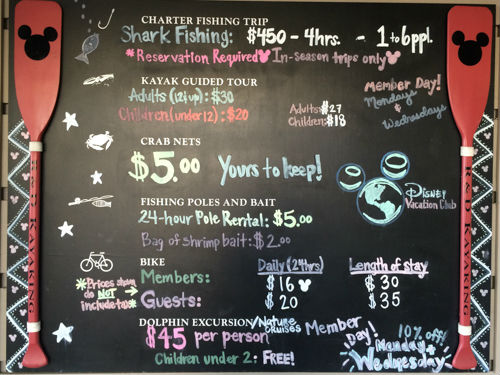 CHARTER FISHING TRIP
Shark Fishing: $450 - 4hrs. - 1 to 6 ppl.
*Reservation Required In-season trips only
KAYAK GUIDED TOUR
Adults (12 & up): $30
Children (under 12): $20
Adults: $27
Children: $18
Member Day!
Mondays
&
Wednesdays
CRAB NETS
$5.00 Yours to keep!
Disney
Vacation Club
FISHING POLES AND BAIT
24-hour Pole Rental: $5.00
Bag of shrimp bait: $2.00
BIKE Daily (24hrs) Length of stay
Members: $16 $30
Guests: $20 $35
*Prices shown
do NOT
include tax*
DOLPHIN EXCURSION/Nature Cruises
$45 per person
Children under 2: FREE!
Member
Day! 10% off!
Monday &
Wednesday
R&D KAYAKING
R&D KAYAKING